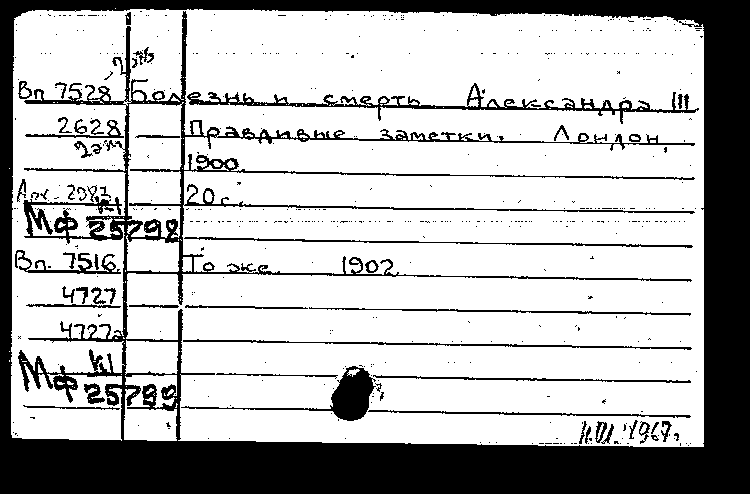 2 экз
Вп 7528 Болезнь и смерть Александра III
2628 Правдивые заметки. Лондон,
1900.
Арх. 2987 20 с.
К1
Мф 25798
Вп. 7516 То же 1902
4727
4727а
К1
Мф 25799
1967г